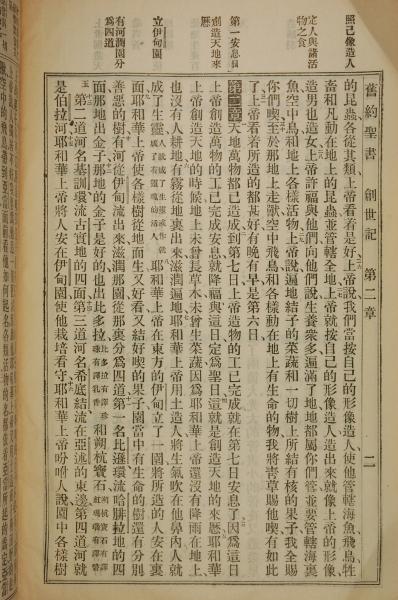 舊約聖書 創世記 第二章 二
照己像造人
定人與諸活物之食
第一安息
創造天地來歷
立伊甸園
有河潤園分爲四道
的昆蟲各從其類上帝看着是好上帝說我們當按自己的形像造人使他管轄海魚飛鳥牲
畜和凡動在地上的昆蟲並管轄全地上帝就按自己的形像造人造出來就像上帝的形像
造男也造女上帝許福與他們向他們說生養衆多遍滿了地地都屬你們管並要管轄海裏
魚空中鳥和地上各樣活物上帝說遍地結子的菜蔬和一切樹上所結有核的果子我全賜
你們喫至於那地上走獸空中飛鳥和各樣動在地上有生命的物我將諸草賜他喫有如此
了上帝看着所造的都甚好有晚有早是第六日
第二章天地萬物都已造成到第七日上帝造物的工已完成就在第七日安息了因爲這日
上帝創造萬物的工已完成安息就降福與這日定爲聖日這就是創造天地的來歷耶和華
上帝創造天地的時候地上未曾長草木未曾生菜蔬因爲耶和華上帝還沒有降雨在地上
也沒有人耕地有霧從地裏出來滋潤遍地耶和華上帝用土造人將生氣吹在他鼻內人就
成了生靈 耶和華上帝在東方的伊甸立了一園將所造的人安在裏
面耶和華上帝使各樣樹從地面生又好看又結好喫的果子園當中有生命的樹還有分別
善惡的樹有河從伊甸流出來滋潤那園從那裏分爲四道第一名比遜環流哈腓拉地的四
面那地出金子那地的金子是好的也出比多拉 和湖杭寶石
第二道河名基訓環流古實地的四面第三道河名希底結流在亞述的東邊第四道河就
是伯拉河耶和華上帝將人安在伊甸園使他栽培看守耶和華上帝吩咐人說園中各樣樹